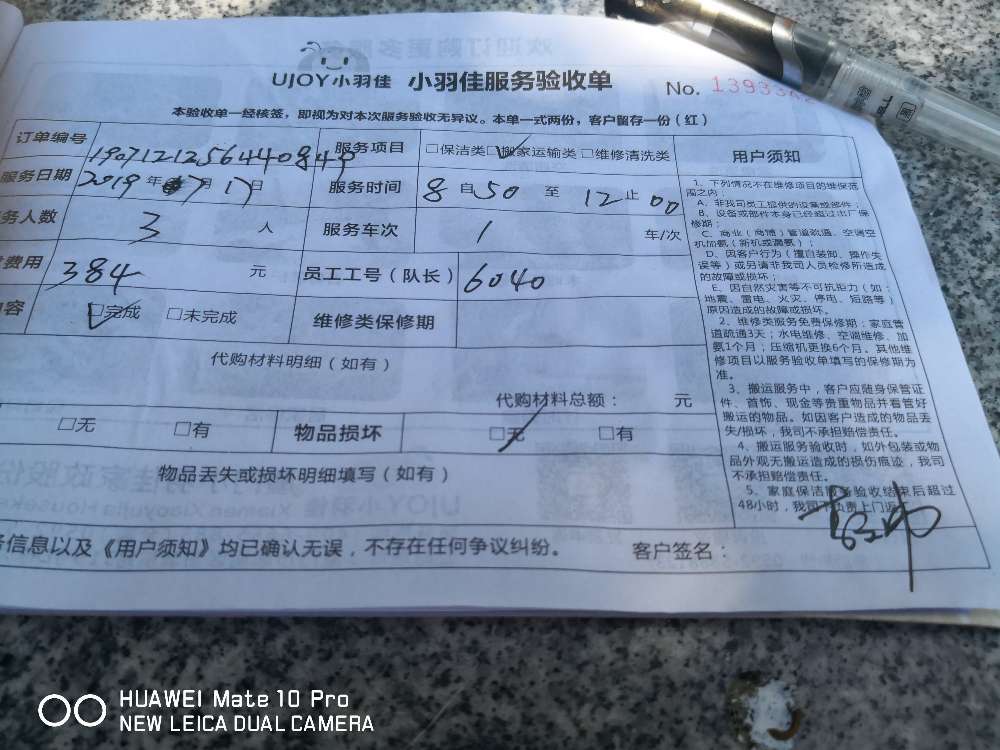 UJOY小羽佳 小羽佳服务验收单 No. 13933
本验收单一经核签，即视为对本次服务验收无异议。本单一式两份，客户留存一份（红）
订单编号 190712125644084 服务项目 □保洁类 □搬家运输类 □维修清洗类
服务日期 2019年7月17日 服务时间 8自50至12止00
务人数 3 人 服务车次 1 车/次
费用 384 元 员工工号（队长） 6040
容 □完成 □未完成 维修类保修期
代购材料明细（如有）
代购材料总额： 元
□无 □有 物品损坏 □无 □有
物品丢失或损坏明细填写（如有）
务信息以及《用户须知》均已确认无误，不存在任何争议纠纷。 客户签名：
用户须知
1、下列情况不在维修项目的维保范
围之内：
A、非我司员工提供的设备或部件；
B、设备或部件本身已经超过出厂保
修期；
C、商业（商铺）管道疏通、空调空
机加氨（新机或漏氨）；
D、因客户行为（擅自装卸、操作失
误等）或另请非我司人员检修所造成
的故障或损坏；
E、因自然灾害等不可抗拒力（如：
地震、雷电、火灾、停电、短路等）
原因造成的故障或损坏。
2、维修类服务免费保修期：家庭管
道疏通3天；水电维修、空调维修、加
氨1个月；压缩机更换6个月。其他维
修项目以服务验收单填写的保修期为
准。
3、搬运服务中，客户应随身保管证
件、首饰、现金等贵重物品并看管好
搬运的物品。如因客户造成的物品丢
失/损坏，我司不承担赔偿责任。
4、搬运服务验收时，如外包装或物
品外观无搬运造成的损伤痕迹，我司
不承担赔偿责任。
5、家庭保洁服务验收结束后超过
48小时，我司不负责上门返
HUAWEI Mate 10 Pro
NEW LEICA DUAL CAMERA